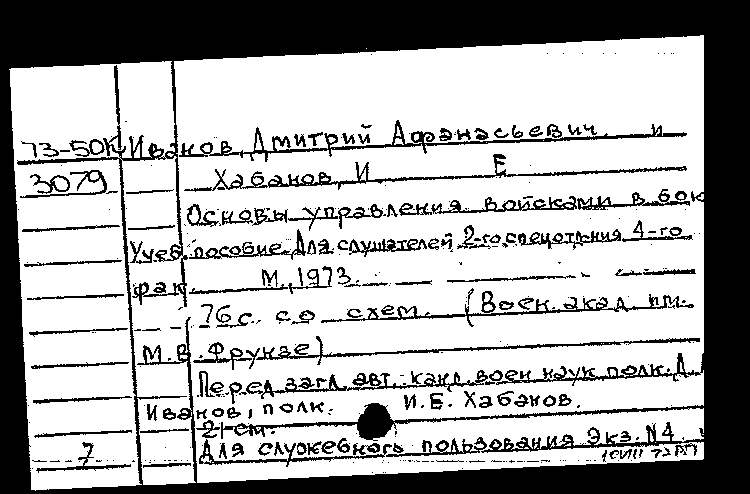 73-50К Иванов, Дмитрий Афанасьевич и
3079 Хабанов, И Е
Основы управления войсками в бою
Учеб. пособие. Для слушателей 2-го спецотд-ния 4-го
фак. М., 1973.
76 с. со схем. (Воен. акад. им.
М.В. Фрунзе)
Перед загл. авт.: канд. воен. наук полк. Д.
Иванов, полк. И.Е. Хабанов.
21 см.
7 Для служебного пользования Экз. N4